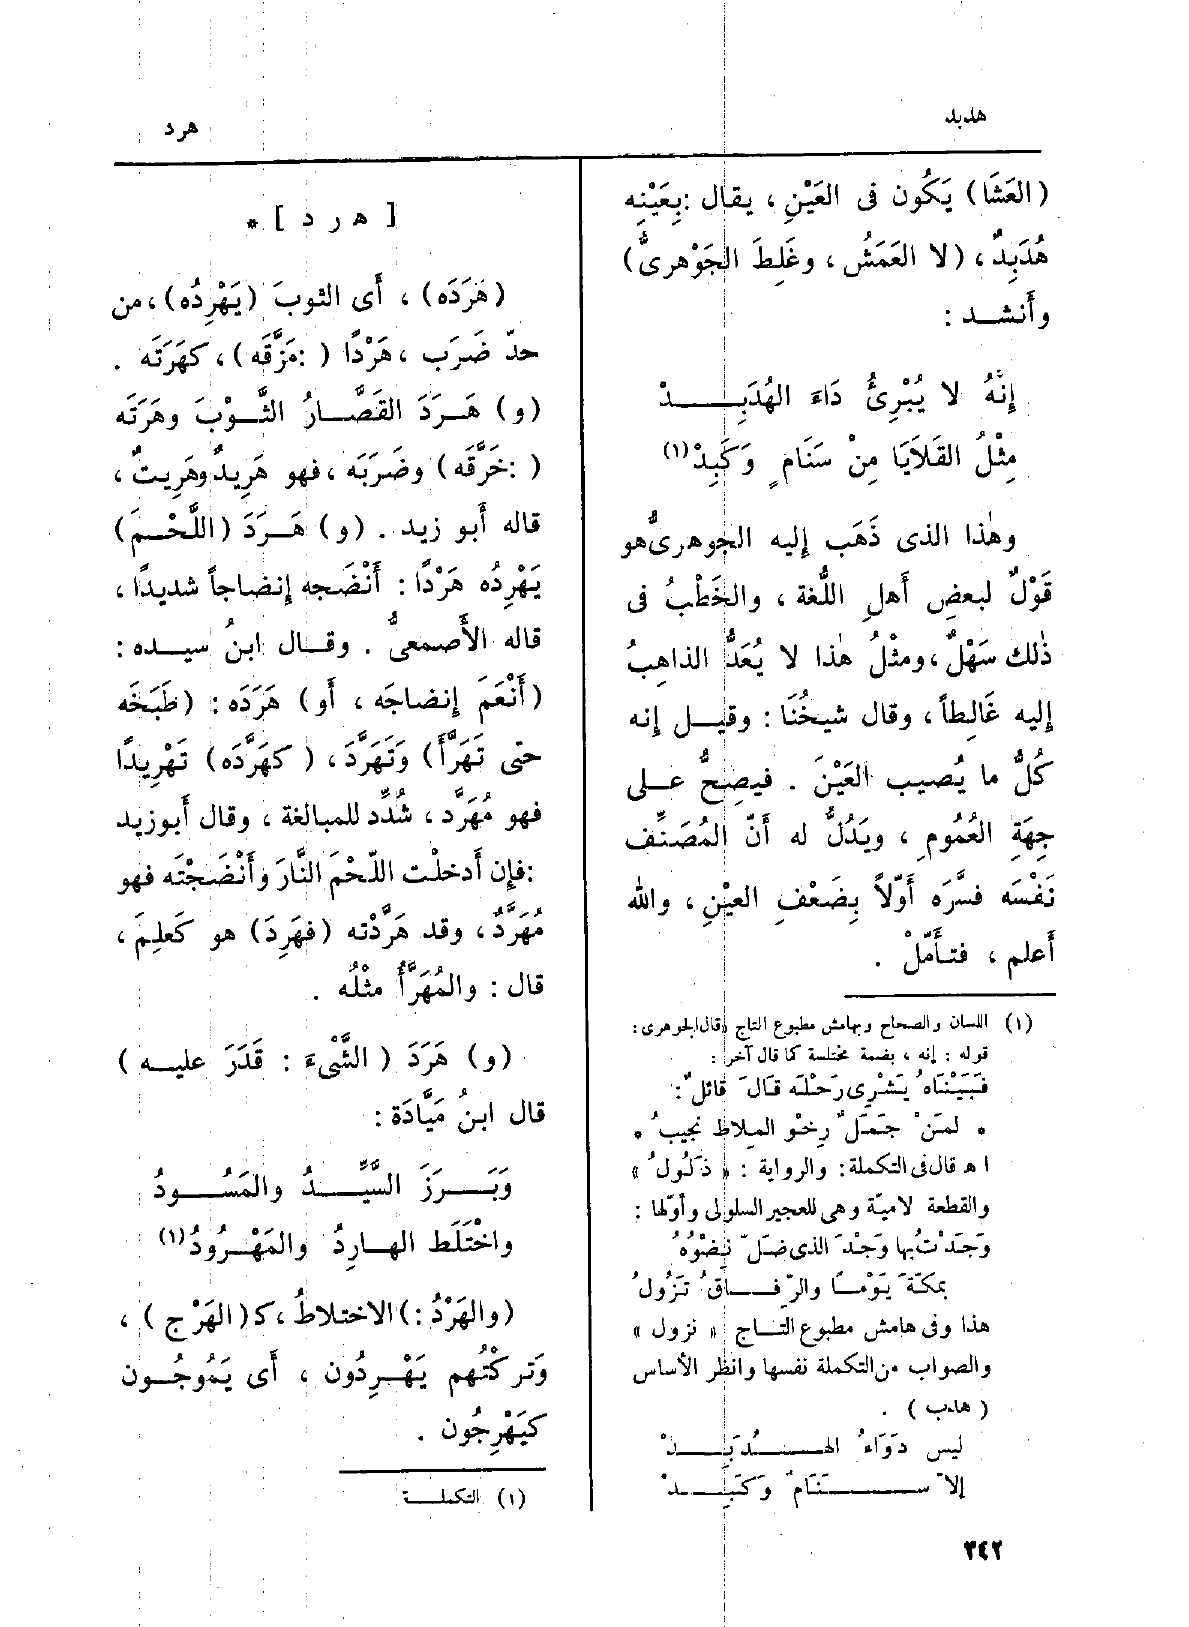 هدبد
هرد
(العَشَا) يَكُون فى العَيْنِ ، يقال :بِعَيْنِه
هُدَبِدٌ ، (لا العَمَشُ ، وغَلِطَ الجَوْهرىُّ)
وأَنشد :
إِنَّهُ لا يُبْرِئُ دَاءَ الهُدَبِدْ
مِثْلُ القَلَايَا مِنْ سَنَامٍ وَكَبِدْ(١)
وهٰذا الذى ذَهَب إِليه الجوهرىُّ هو
قَوْلٌ لبعضِ أَهلِ اللُّغة ، والخَطْبُ فى
ذٰلك سَهْلٌ ، ومثْلُ هٰذا لا يُعَدُّ الذاهِبُ
إِليه غَالِطاً ، وقال شيخُنَا : وقيل إِنه
كُلُّ ما يُصيب العَيْنَ . فيصِحُّ على
جِهَةِ العُمُومِ ، ويَدُلُّ له أَنّ المُصَنِّف
نَفْسَه فسَّرَه أَوّلاً بِضَعْفِ العيْنِ ، والله
أَعلم ، فتأَمّلْ .
(١) اللسان والصحاح وبهامش مطبوع التاج «قال الجوهرى :
قوله : إنه ، بضمة مختلسة كما قال آخر :
فَبَيْنَاهُ يَشْرِى رَحْلَه قَالَ قائلٌ :
* لمَنْ جَمَلٌ رِخْو المِلاط نجيبُ *
ا هـ قال فى التكملة : والرواية : « ذَلُولُ »
والقطعة لاميّة وهى للعجير السلولى وأوّلها :
وَجَدْتُ بها وَجْدَ الذى ضَلَّ نِضْوُهُ
بمكّةَ يَوْمًا والرّفاقُ نَزُولُ
هذا وفى هامش مطبوع التاج « نزول »
والصواب من التكملة نفسها وانظر الأساس
( هدب ) .
ليس دَوَاءُ الهُدَبِدْ
إلاّ سَنَامٌ وَكَبِدْ
[ هـ ر د ] *
(هَرَدَه) ، أَى الثوبَ (يَهْرِدُه) ، من
حدّ ضَرَب ، هَرْدًا ( : مَزَّقَه) ، كهَرَتَه .
(و) هَرَدَ القَصَّارُ الثَّوْبَ وهَرَتَه
( : خَرَّقَه) وضَرَبَه ، فهو هَرِيدٌ وهَرِيتٌ ،
قاله أَبو زيد . (و) هَرَدَ (اللَّحْمَ)
يَهْرِدُه هَرْدًا : أَنْضَجه إِنضاجاً شديدًا ،
قاله الأَصمعىُّ . وقال ابنُ سيده :
(أَنْعَمَ إِنضاجَه ، أَو) هَرَدَه : (طَبَخَه
حتى تَهَرَّأَ) وَتَهَرَّدَ ، ( كهَرَّدَه) تَهْرِيدًا
فهو مُهَرَّد ، شُدِّد للمبالغة ، وقال أَبو زيد
: فإِن أَدخلْت اللّحْمَ النَّارَ وأَنْضَجْتَه فهو
مُهَرَّدٌ ، وقد هَرَّدْته (فهَرِدَ) هو كَعلِمَ ،
قال : والمُهَرَّأُ مثْلُه .
(و) هَرَدَ ( الشَّىْءَ : قَدَرَ عليه )
قال ابنُ مَيَّادَة :
وَبَرَزَ السَّيِّدُ والمَسُودُ
واخْتَلَط الهارِدُ والمَهْرُودُ(١)
(والهَرْدُ :) الاختلاطُ ، كـ(الهَرْجِ ) ،
وَتركْتُهم يَهْرِدُون ، أَى يَمُوجُون
كيَهْرِجُون .
(١) التكملة
٣٤٢